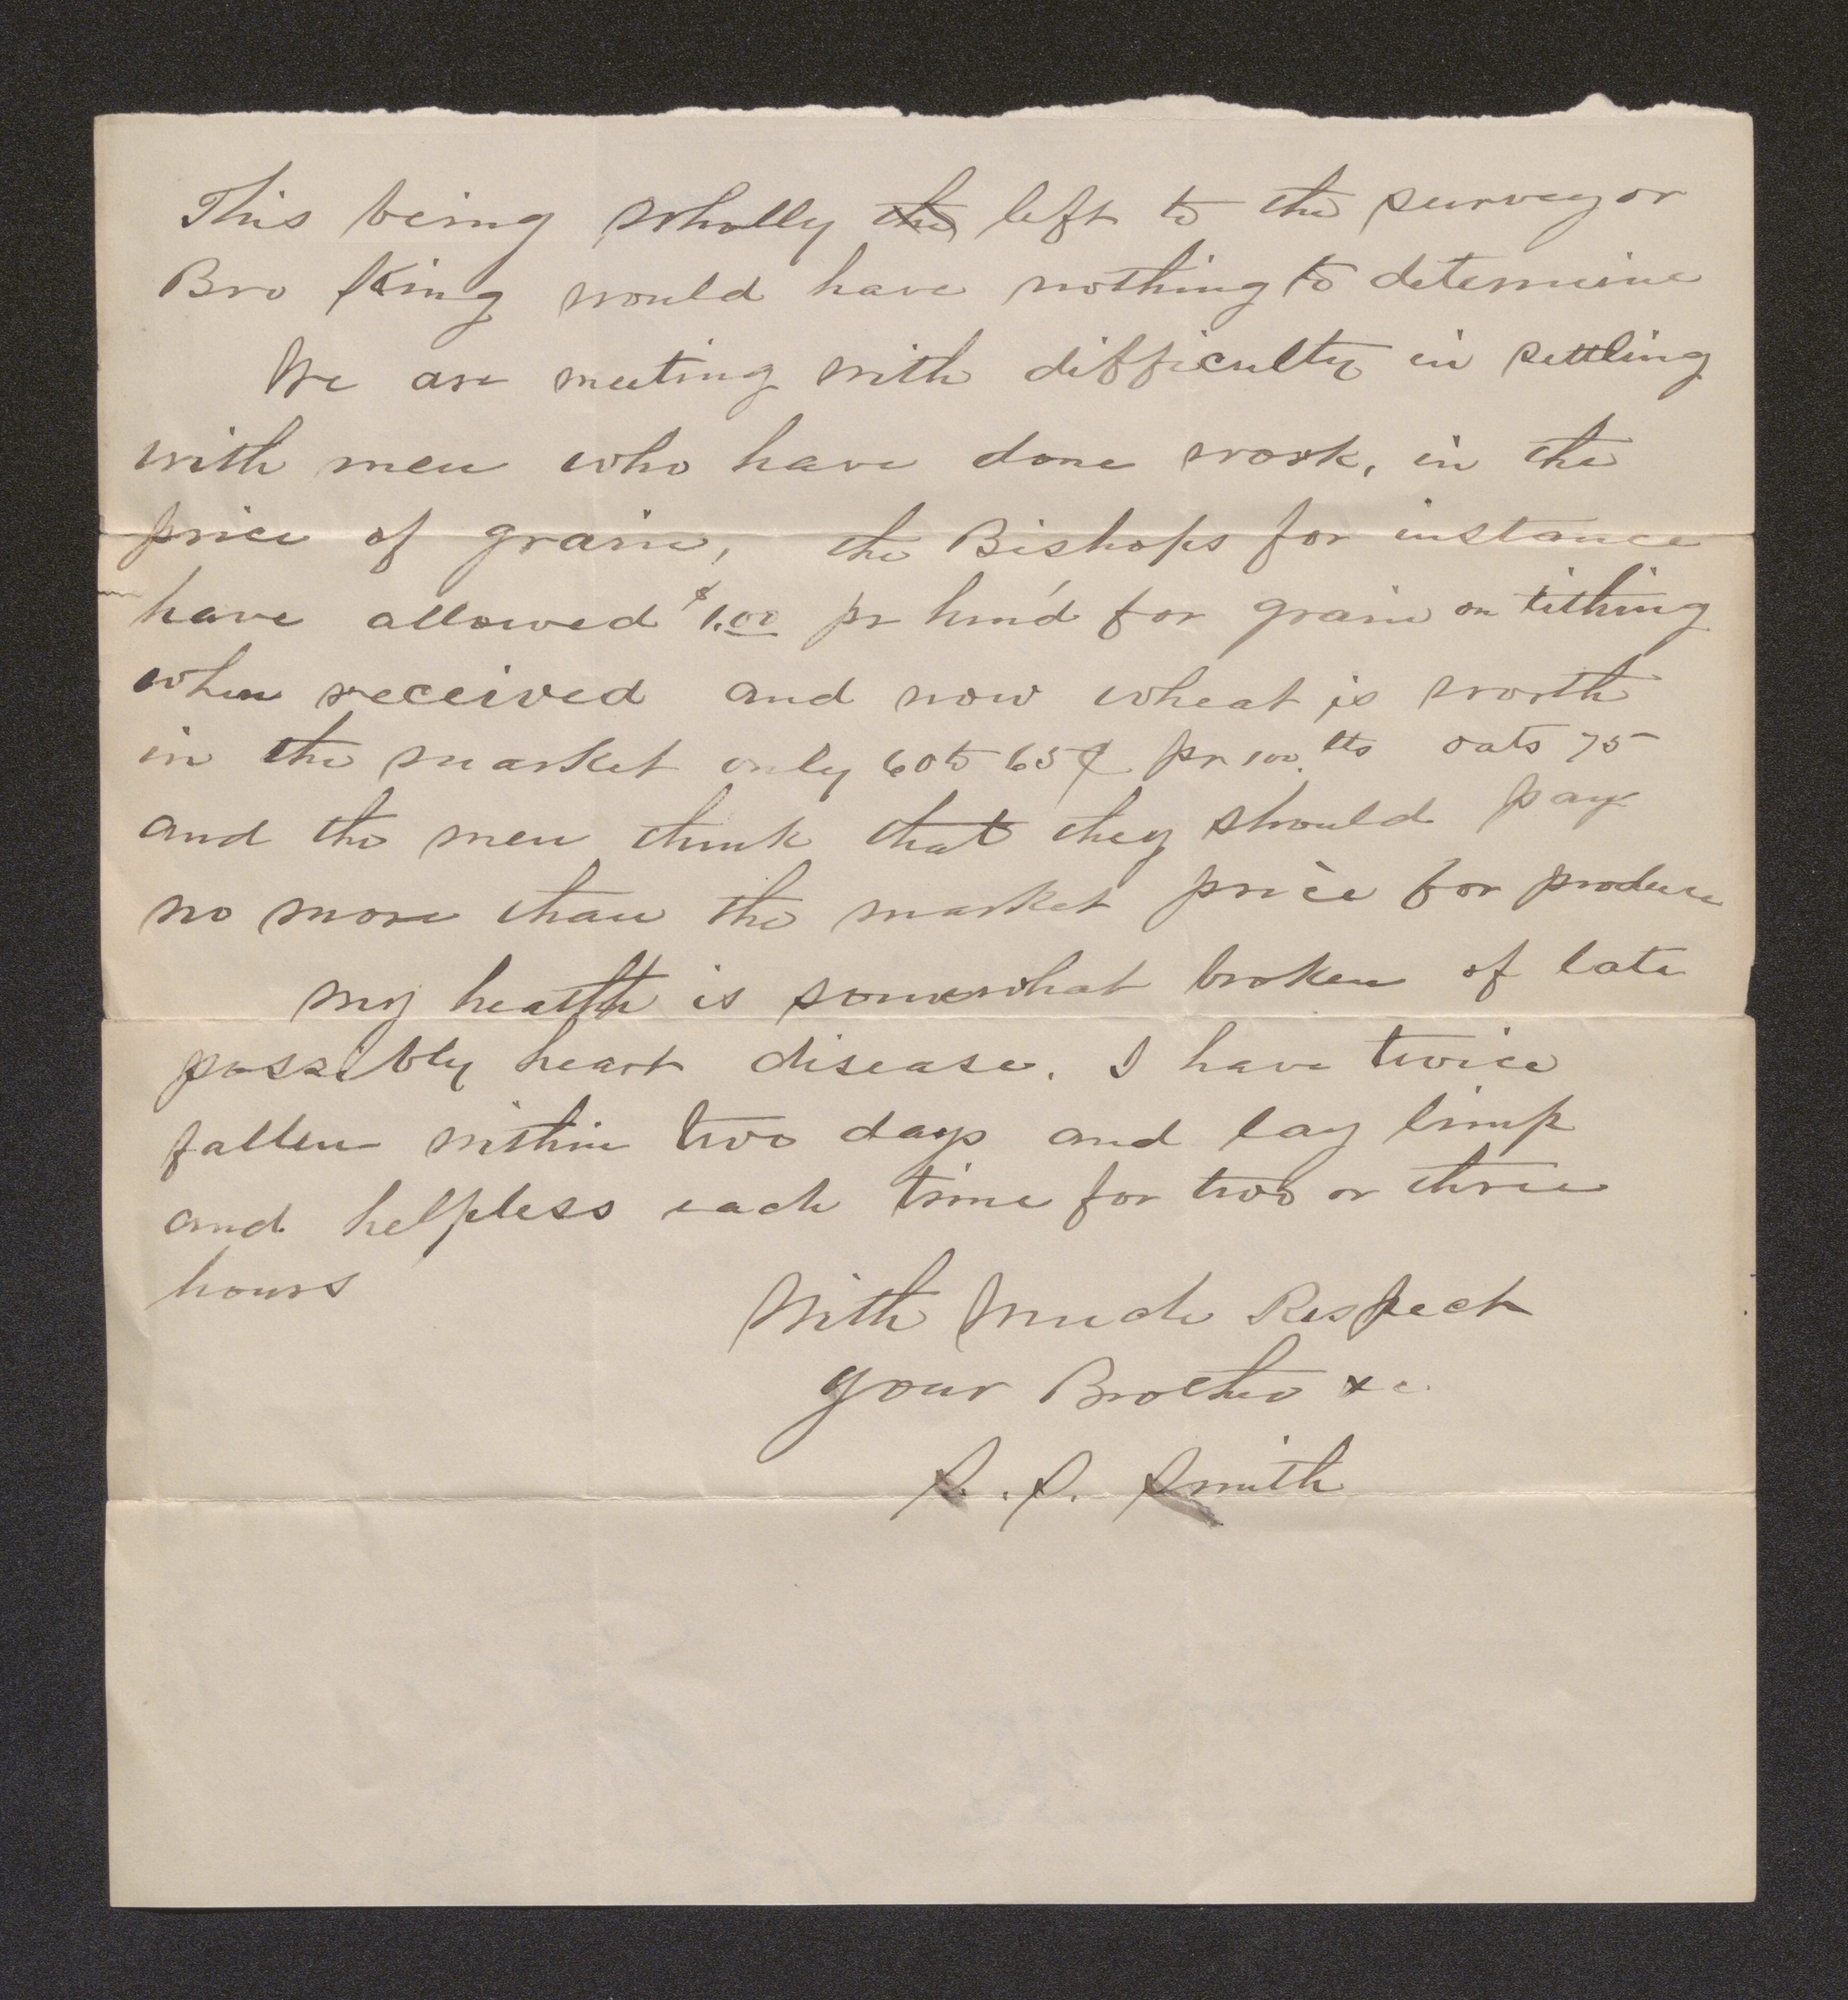 This being wholly the left to the surveyor
Bro King would have nothing to determine
We are meeting with difficulty in settling
with men who have done work, in the
price of grain, the Bishops for instance
have allowed $1.00 pr hund for grain on tithing
when received and now wheat is worth
in the market only 60 to 65¢ pr 100 lbs oats 75
and the men think that they should pay
no more than the market price for produce
My health is somewhat broken of late
possibly heart disease. I have twice
fallen within two days and lay limp
and helpless each time for two or three
hours
With Much Respect
your Brother &c.
S. S. Smith